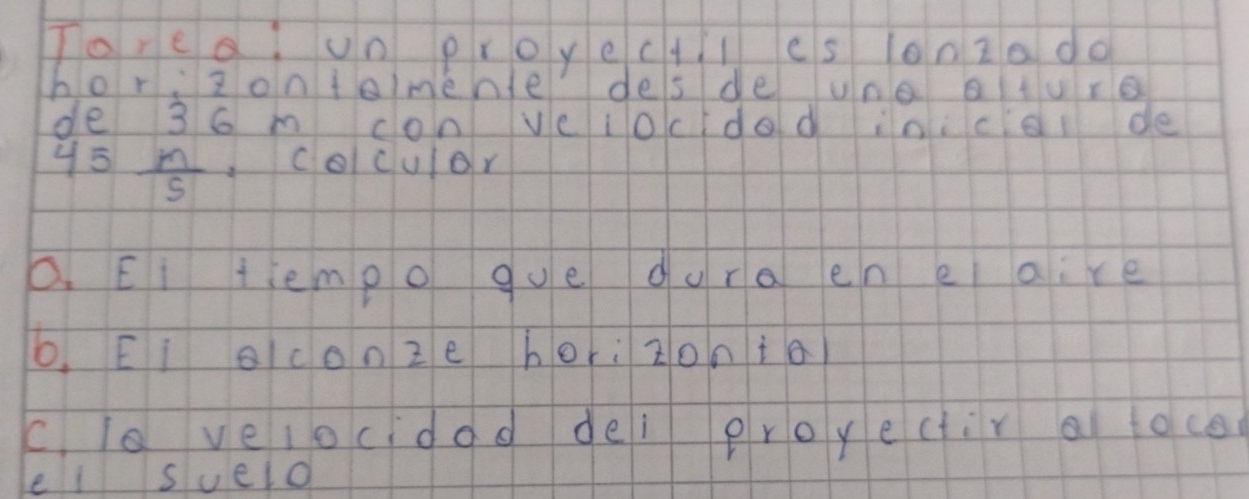 Tarea: un proyectil es lanzado
horizontalmente desde una altura
de 36 m con velocidad inicial de
45 m/s. calcular
a. El tiempo que dura en el aire
b. El alcanze horizontal
c. la velocidad del proyectir al tocar
el suelo